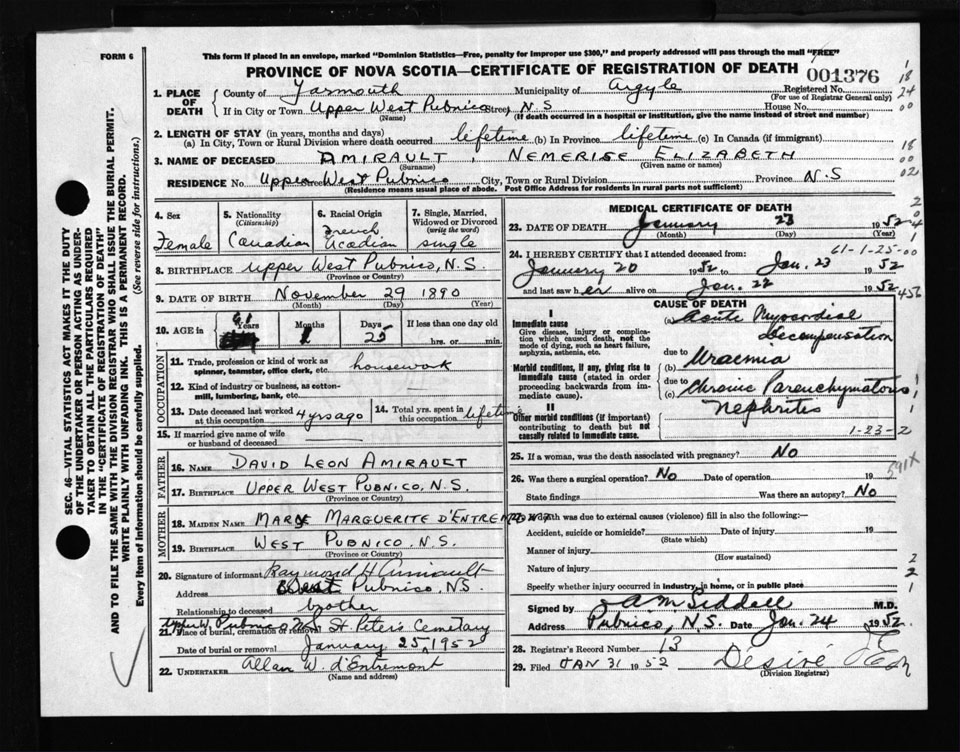 FORM 6
This form if placed in an envelope, marked "Dominion Statistics—Free, penalty for improper use $300," and properly addressed will pass through the mail "FREE"
PROVINCE OF NOVA SCOTIA—CERTIFICATE OF REGISTRATION OF DEATH
001376
1. PLACE OF DEATH
County of Yarmouth Municipality of Argyle Registered No.
(For use of Registrar General only)
If in City or Town Upper West Pubnico Street N S House No.
(Name) (If death occurred in a hospital or institution, give the name instead of street and number)
18
24
00
2. LENGTH OF STAY (in years, months and days)
(a) In City, Town or Rural Division where death occurred lifetime (b) In Province lifetime (c) In Canada (if immigrant)
3. NAME OF DECEASED AMIRAULT, NEMERISE ELIZABETH
(Surname) (Given name or names)
RESIDENCE No. Upper West Pubnico City, Town or Rural Division Province N.S
(Residence means usual place of abode. Post Office Address for residents in rural parts not sufficient)
18
00
02
4. Sex
Female
5. Nationality
(Citizenship)
Canadian
6. Racial Origin
French
Acadian
7. Single, Married, Widowed or Divorced
(write the word)
single
8. BIRTHPLACE Upper West Pubnico, N.S.
(Province or Country)
9. DATE OF BIRTH November 29 1890
(Month) (Day) (Year)
10. AGE in
61
Years
Months
1
Days
25
If less than one day old
hrs. or min.
OCCUPATION
11. Trade, profession or kind of work as
spinner, teamster, office clerk, etc. housework
12. Kind of industry or business, as cotton-
mill, lumbering, bank, etc. —
13. Date deceased last worked
at this occupation 4 yrs ago
14. Total yrs. spent in
this occupation lifetime
15. If married give name of wife
or husband of deceased
FATHER
16. NAME DAVID LEON AMIRAULT
17. BIRTHPLACE UPPER WEST PUBNICO, N.S.
(Province or Country)
MOTHER
18. MAIDEN NAME MARY MARGUERITE D'ENTREMONT
19. BIRTHPLACE WEST PUBNICO. N.S.
(Province or Country)
20. Signature of informant Raymond H Amirault
Address West Pubnico, N.S.
Relationship to deceased brother
Upper W. Pubnico N.S St. Peter's Cemetary
21. Place of burial, cremation or removal
Date of burial or removal January 25, 1952
22. UNDERTAKER Allan W. d'Entremont
(Name and address)
MEDICAL CERTIFICATE OF DEATH
23. DATE OF DEATH January 23 1952
(Month) (Day)
24. I HEREBY CERTIFY that I attended deceased from:
61-1-25-00
January 20 1952 to Jan. 23 1952
and last saw her alive on Jan. 22 1952
456
CAUSE OF DEATH
I
Immediate cause
Give disease, injury or complica-
tion which caused death, not the
mode of dying, such as heart failure,
asphyxia, asthenia, etc.
(a) Acute Myocardial
Decompensation
due to
(b) Uraemia
Morbid conditions, if any, giving rise to
immediate cause (stated in order
proceeding backwards from im-
mediate cause).
due to
(c) Chronic Parenchymatous
Nephritis
II
Other morbid conditions (if important)
contributing to death but not
causally related to immediate cause.
1-23-2
25. If a woman, was the death associated with pregnancy? No
591X
26. Was there a surgical operation? No Date of operation 19
State findings Was there an autopsy? No
27. If death was due to external causes (violence) fill in also the following:—
Accident, suicide or homicide? Date of injury 19
(State which)
Manner of injury
(How sustained)
Nature of injury
Specify whether injury occurred in industry, in home, or in public place
Signed by A M Siddall M.D.
Address Pubnico, N.S. Date Jan. 24 1952.
28. Registrar's Record Number 13
29. Filed JAN 31 1952 Désiré
(Division Registrar)
SEC. 46—VITAL STATISTICS ACT MAKES IT THE DUTY
OF THE UNDERTAKER OR PERSON ACTING AS UNDER-
TAKER TO OBTAIN ALL THE PARTICULARS REQUIRED
IN THE "CERTIFICATE OF REGISTRATION OF DEATH"
AND TO FILE THE SAME WITH THE DIVISION REGISTRAR WHO SHALL ISSUE THE BURIAL PERMIT.
WRITE PLAINLY WITH UNFADING INK. THIS IS A PERMANENT RECORD.
Every item of information should be carefully supplied. (See reverse side for instructions.)